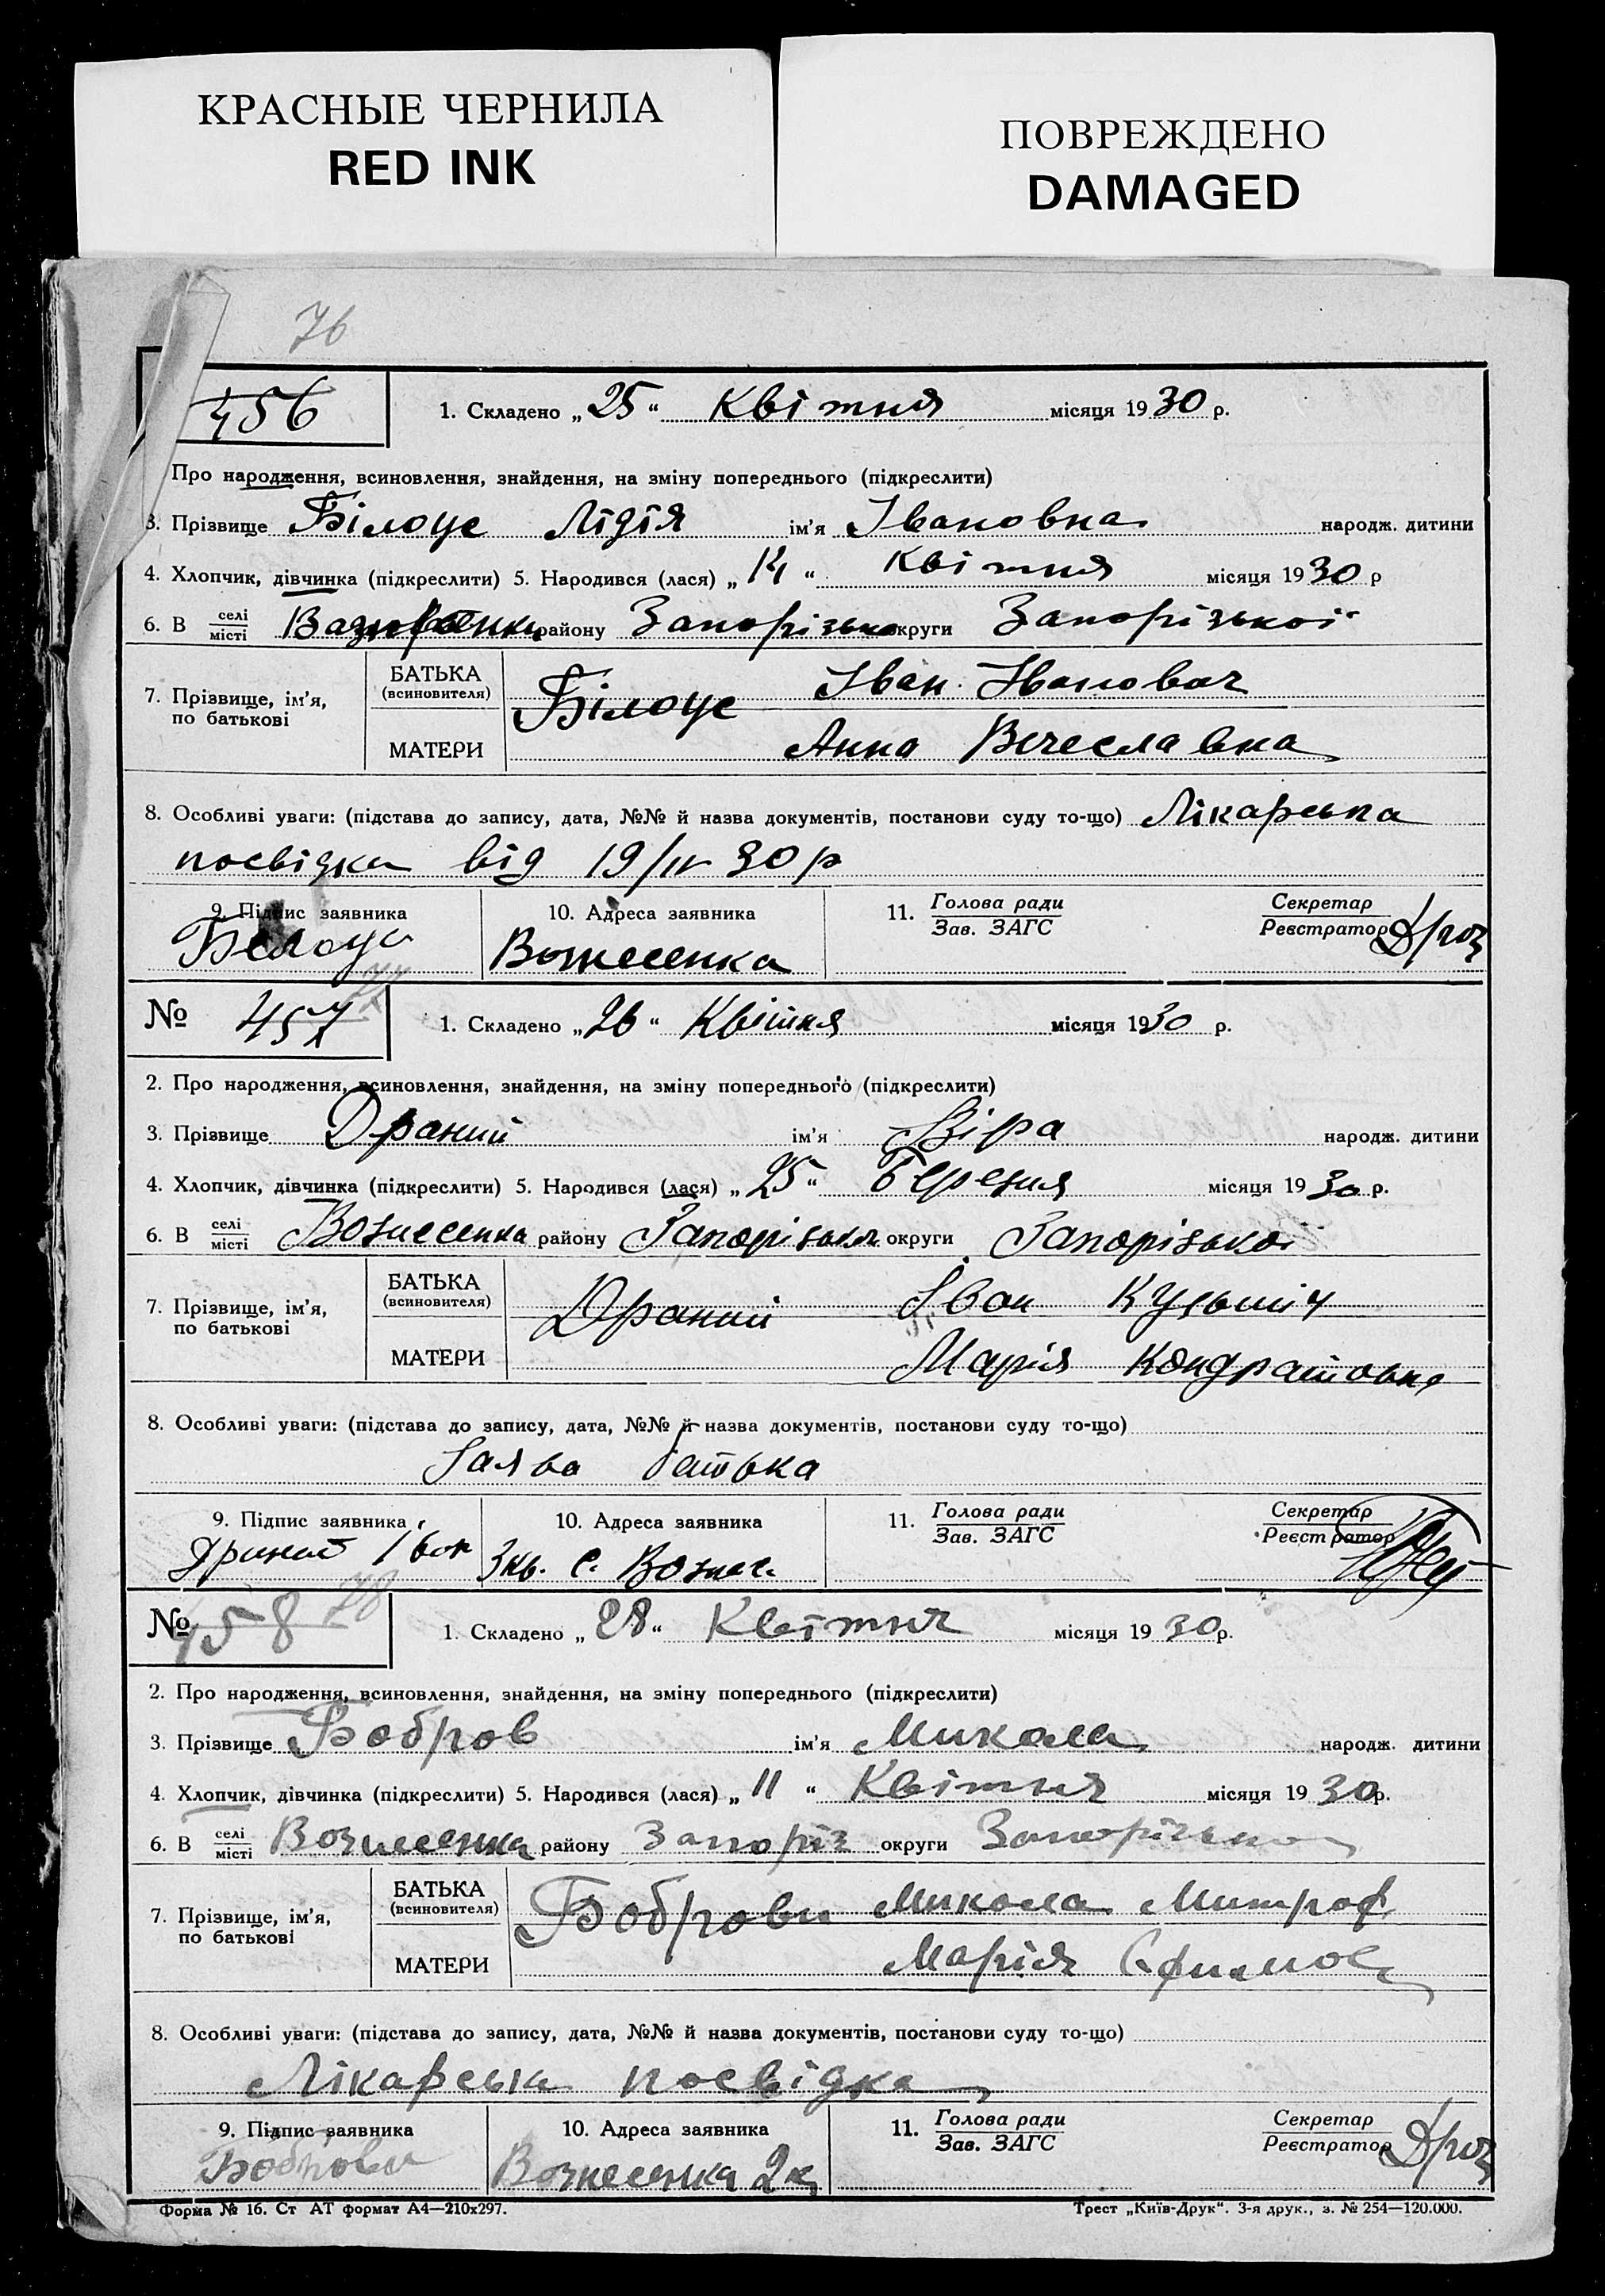 КРАСНЫЕ ЧЕРНИЛА
RED INK
ПОВРЕЖДЕНО
DAMAGED
76
456
1. Складено „ 25 “ Квітня місяця 1930 р.
Про народження, всиновлення, знайдення, на зміну попереднього (підкреслити)
3. Прізвище Білоус Лідія ім’я Івановна народж. дитини
4. Хлопчик, дівчинка (підкреслити) 5. Народився (лася) „ 14 “ Квітня місяця 1930 р
6. В селі місті району Запорізько округи Запорізької
7. Прізвище, ім’я, по батькові
БАТЬКА (всиновителя) Білоус Іван Іванович
МАТЕРИ Анна Вечеславна
8. Особливі уваги: (підстава до запису, дата, №№ й назва документів, постанови суду то-що) Лікарська
посвідка від 19/IV 30 р
9. Підпис заявника 10. Адреса заявника 11. Голова ради Зав. ЗАГС Секретар Реєстратор
Белоус Вознесенка
77
№ 457 1. Складено „ 26 “ Квітня місяця 1930 р.
2. Про народження, всиновлення, знайдення, на зміну попереднього (підкреслити)
3. Прізвище Драний ім’я Віра народж. дитини
4. Хлопчик, дівчинка (підкреслити) 5. Народився (лася) „ 25 “ Березня місяця 1930 р.
6. В селі місті Вознесенка району Запорізьк округи Запорізької
7. Прізвище, ім’я, по батькові
БАТЬКА (всиновителя) Драний Іван Кузьміч
МАТЕРИ Марія Кондратовна
8. Особливі уваги: (підстава до запису, дата, №№ й назва документів, постанови суду то-що)
Заява батька
9. Підпис заявника 10. Адреса заявника 11. Голова ради Зав. ЗАГС Секретар Реєстратор
Драний Іван 3 кв. с. Вознес.
78
№ 458 1. Складено „ 28 “ Квітня місяця 1930 р.
2. Про народження, всиновлення, знайдення, на зміну попереднього (підкреслити)
3. Прізвище Бобров ім’я Микола народж. дитини
4. Хлопчик, дівчинка (підкреслити) 5. Народився (лася) „ 11 “ Квітня місяця 1930 р.
6. В селі місті Вознесенка району Запоріз округи Запорізько
7. Прізвище, ім’я, по батькові
БАТЬКА (всиновителя) Боброви Микола Митроф
МАТЕРИ Марія Єфимов
8. Особливі уваги: (підстава до запису, дата, №№ й назва документів, постанови суду то-що)
Лікарська посвідка
9. Підпис заявника 10. Адреса заявника 11. Голова ради Зав. ЗАГС Секретар Реєстратор
Вознесенка 2 к
Форма № 16. Ст АТ формат А4—210х297. Трест „Київ-Друк“. 3-я друк., з. № 254—120.000.